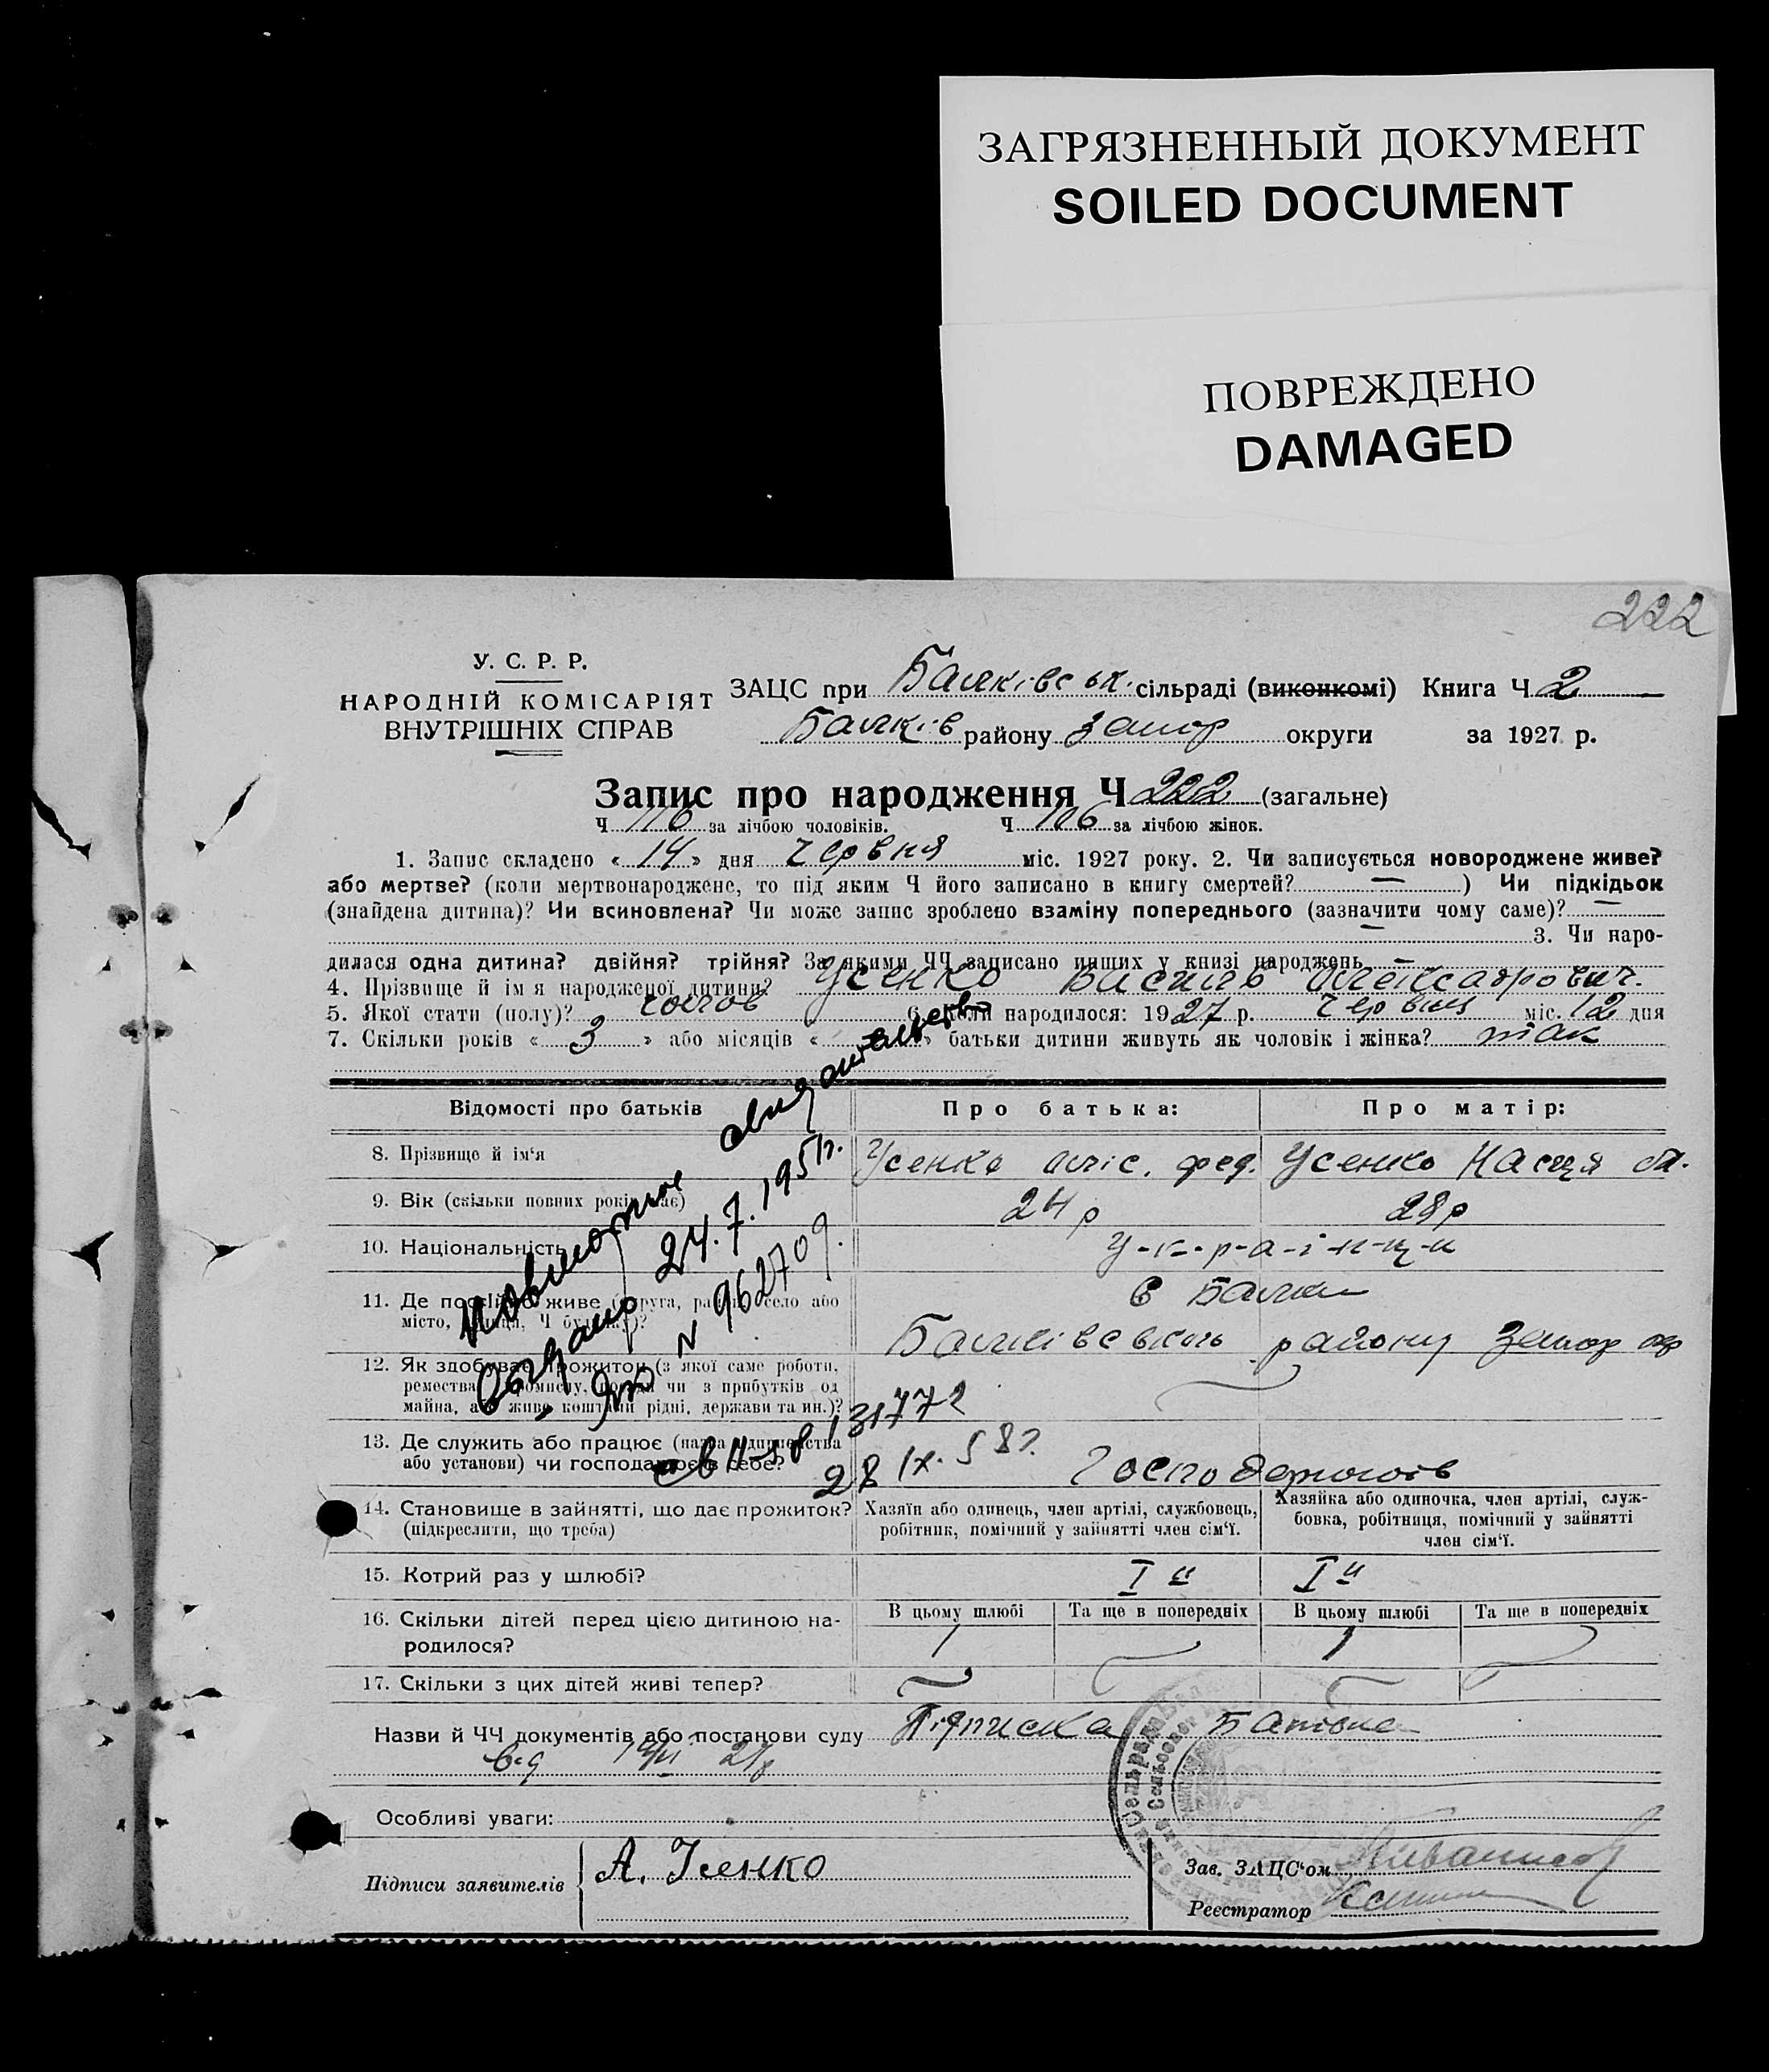 ЗАГРЯЗНЕННЫЙ ДОКУМЕНТ
SOILED DOCUMENT
ПОВРЕЖДЕНО
DAMAGED
222
У. С. Р. Р.
НАРОДНІЙ КОМІСАРІЯТ
ВНУТРІШНІХ СПРАВ
ЗАЦС при Балківськ. сільраді (виконкомі) Книга Ч. 2
Балків району Запор округи за 1927 р.
Запис про народження Ч 222 (загальне)
Ч 116 за лічбою чоловіків. Ч 106 за лічбою жінок.
1. Запис складено « 14 » дня червня міс. 1927 року. 2. Чи записується новороджене живе?
або мертве? (коли мертвонароджене, то під яким Ч його записано в книгу смертей? — ) Чи підкідьок
(знайдена дитина)? Чи всиновлена? Чи може запис зроблено взаміну попереднього (зазначити чому саме)? —
— 3. Чи наро-
дилася одна дитина? двійня? трійня? За якими ЧЧ записано инших у книзі народжень —
4. Прізвище й ім'я народженої дитини? Усенко Василь
5. Якої стати (полу)? 6. Коли народилося: 1927 р. червня міс. 12 дня
7. Скільки років « 3 » або місяців « » батьки дитини живуть як чоловік і жінка? так
Відомості про батьків Про батька: Про матір:
8. Прізвище й ім'я Усенко фед. Усенко Настя
9. Вік (скільки повних років має) 24 р 28 р
10. Національність У-к-р-а-ї-н-ц-и
11. Де постійно живе (округа, район, село або
місто, вулиця, Ч будинку)?
с Балки
Балківського району Запор окр
12. Як здобуває прожиток (з якої саме роботи,
ремества, промислу, посади чи з прибутків од
майна, або живе коштами рідні, держави та ин.)?
13. Де служить або працює (назва підприємства
або установи) чи господарює в себе?
Повторное свидетельство
выдано 24.7.1951г.
№ 962709.
131772
28 IX. 58г.
14. Становище в зайнятті, що дає прожиток?
(підкреслити, що треба)
Хазяїн або одинець, член артілі, службовець,
робітник, помічний у зайнятті член сім'ї.
Хазяйка або одиночка, член артілі, служ-
бовка, робітниця, помічний у зайнятті
член сім'ї.
15. Котрий раз у шлюбі? I й I й
16. Скільки дітей перед цією дитиною на-
родилося?
В цьому шлюбі Та ще в попередніх В цьому шлюбі Та ще в попередніх
1 1
17. Скільки з цих дітей живі тепер?
Назви й ЧЧ документів або постанови суду Підписка Батька
Особливі уваги:
Підписи заявителів А. Усенко
Зав. ЗАЦС'ом
Реєстратор